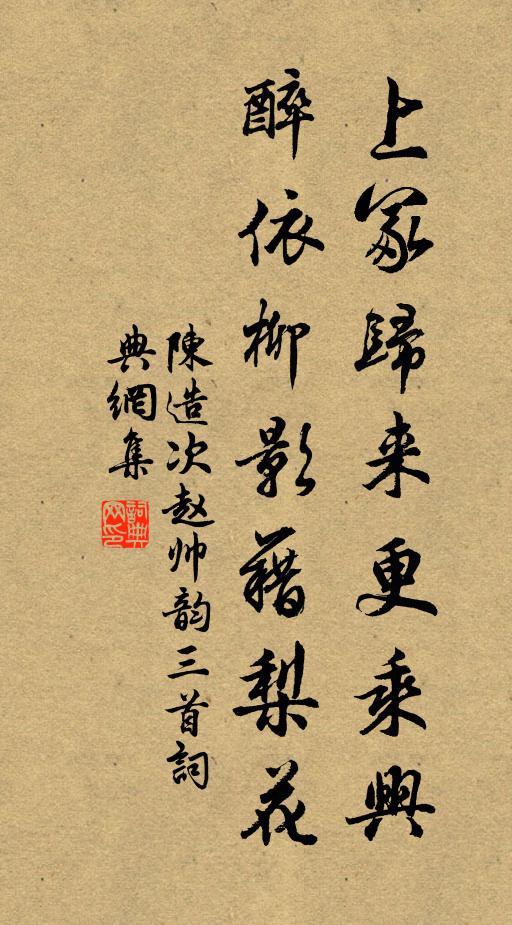 上冢歸来更乘興
醉依柳影藉梨花
陳造次赵帅韵三首詞
典網集
詞典
网印